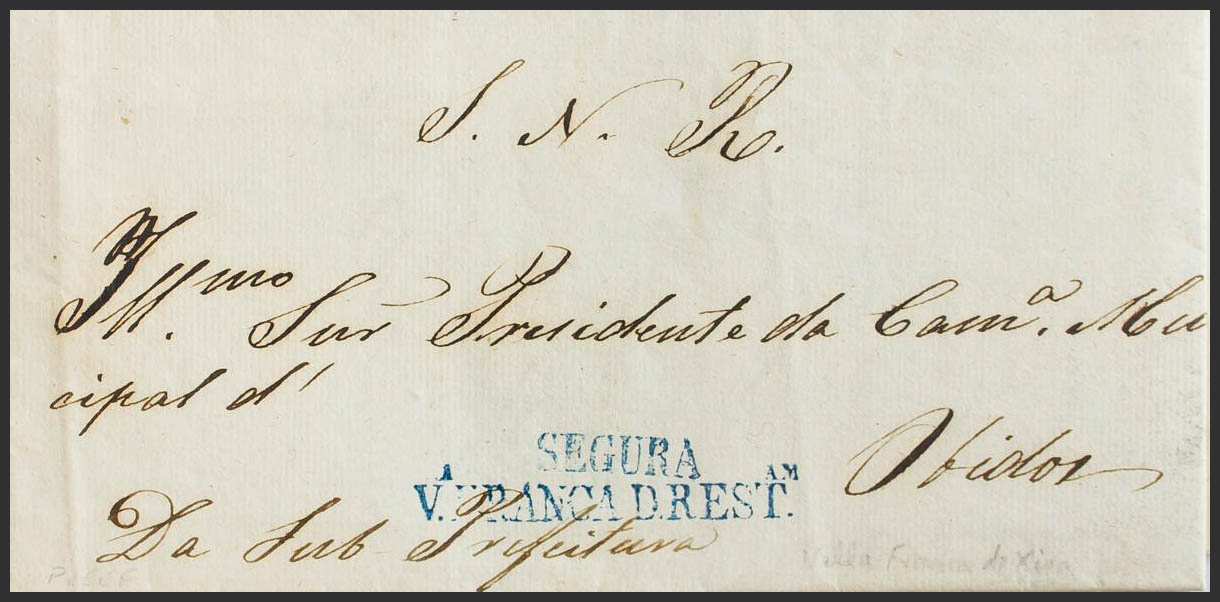 S. N. R.
Ill.mo Snr Presidente da Cam.a Mu
cipal d'
Obidos
SEGURA
V.A FRANCA D.REST.AM
Da Sub Prefeitura
Villa Franca de Xira